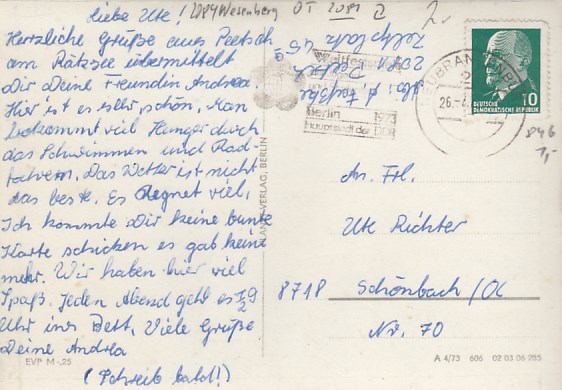 Liebe Ute! 2084 Wesenberg OT 2081
Herzliche Grüße aus Peetsch
am Rätzsee übermittelt
Dir Deine Freundin Andrea.
Hier ist es sehr schön. Man
bekommt viel Hunger durch
das Schwimmen und Rad-
fahren. Das Wetter ist nicht
das beste. Es Regnet viel,
Ich konnte Dir keine bunte
Karte schicken es gab keine
mehr. Wir haben hier viel
Spaß. Jeden Abend geht es 1/2 9
Uhr ins Bett. Viele Grüße
Deine Andrea
(Schreib bald!)
EVP M -,25
2081 Peetsch
Berlin 1973
Hauptstadt der DDR
VERLAG, BERLIN
NEUBRANDENBURG
26.
DEUTSCHE
DEMOKRATISCHE REPUBLIK
10
1,-
An Frl.
Ute Richter
8718 Schönbach/OL
Nr. 70
A 4/73 606 02 03 06 285